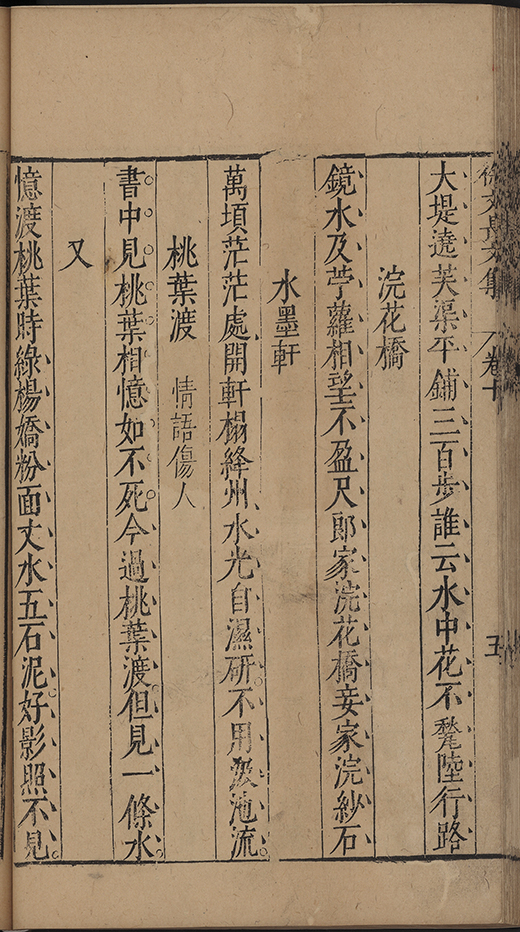 徐文長文集 卷十 五
大堤遶芙渠平鋪三百步誰云水中花不礙陸行路
浣花橋
鏡水及苧蘿相望不盈尺郎家浣花橋妾家浣紗石
水墨軒
萬頃茫茫處開軒榻絳州水光自濕研不用汲池流
桃葉渡 情語傷人
書中見桃葉相憶如不死今過桃葉渡但見一條水
又
憶渡桃葉時綠楊嬌粉面丈水五石泥好影照不見